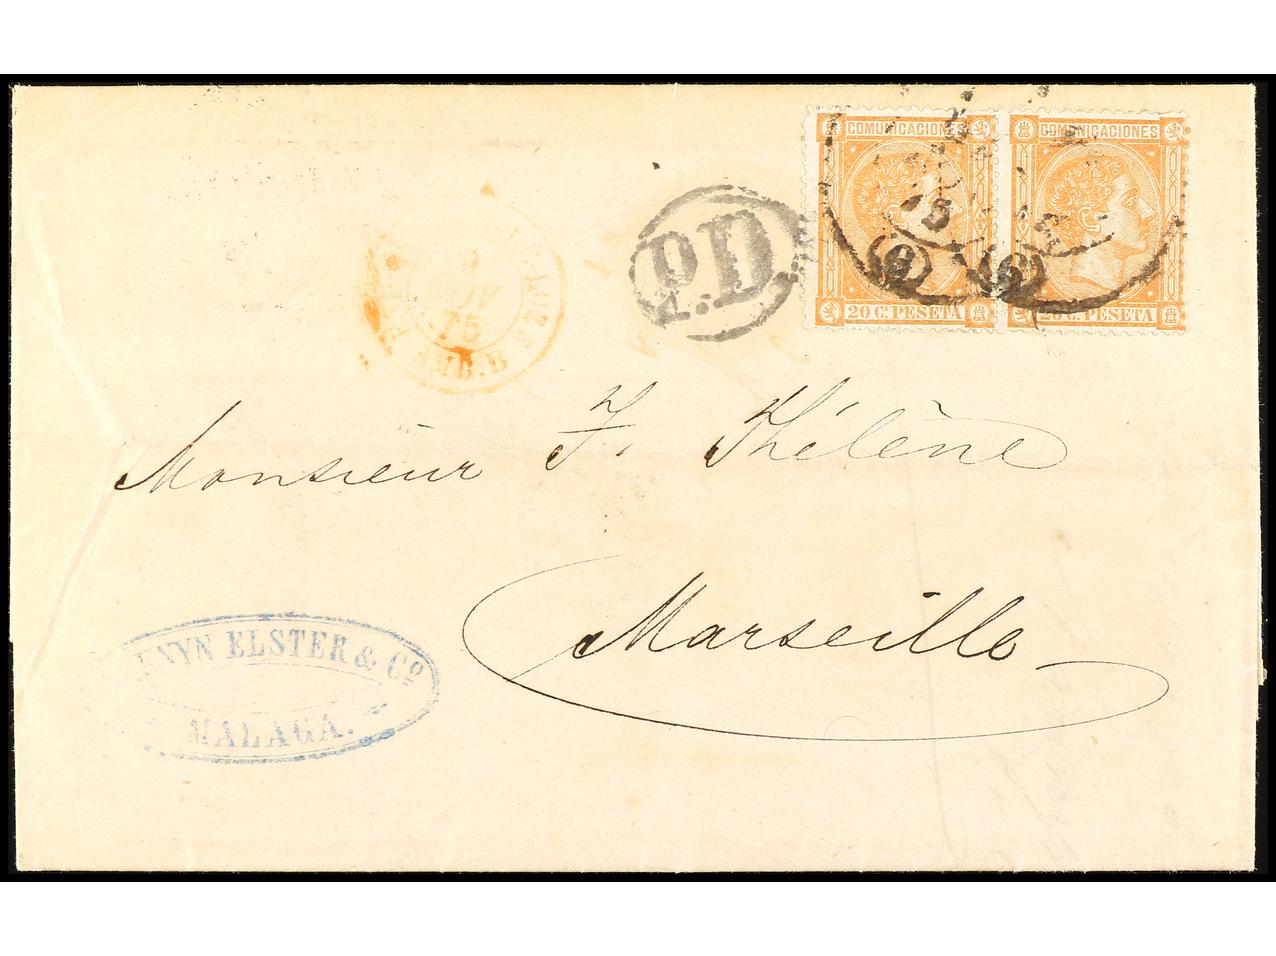 COMUNICACIONES COMUNICACIONES
20 C. PESETA 20 C. PESETA
P.D.
9
NOV
75
AMB. B
Monsieur F. Thélène
Marseille
ELSTER & Cº
MALAGA.